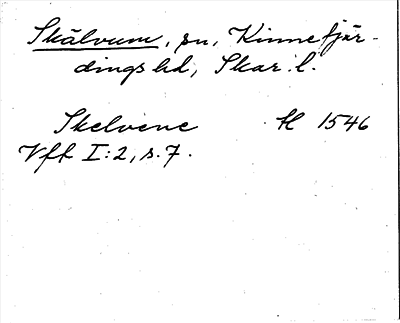 Skälvum, sn, Kinnefjär-
dings hd, Skar. l.
Skelvene H 1546
Vft I:2, s. 7.